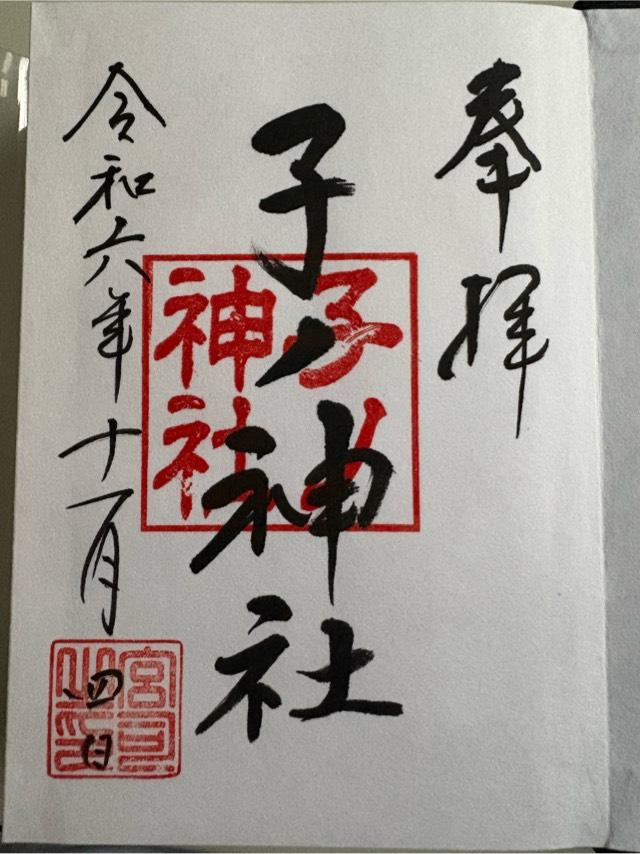 奉拝
子ノ神社
子ノ
神社
令和六年十一月四日
宮司之印